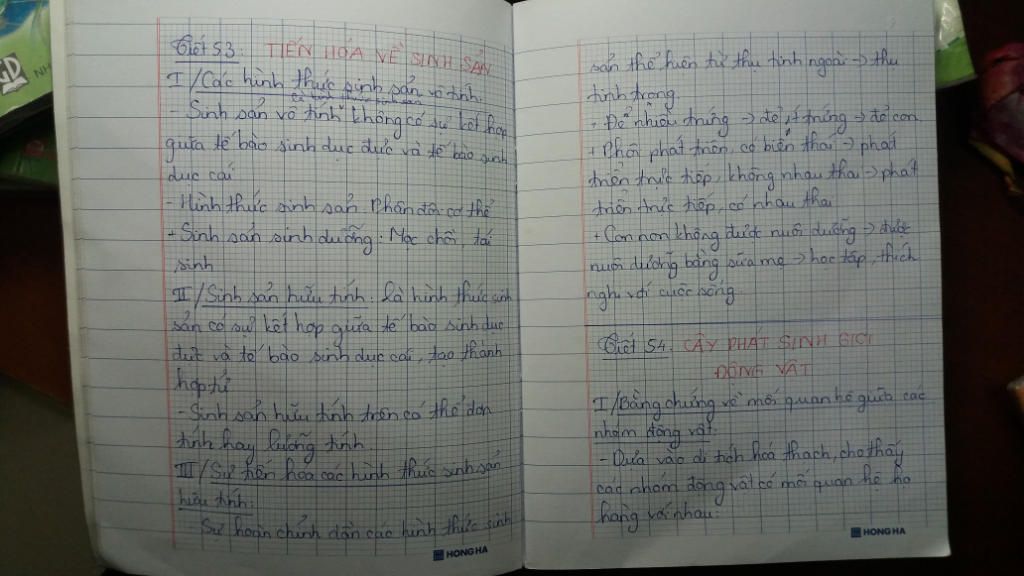 Tiết 53: TIẾN HÓA VỀ SINH SẢN
I/ Các hình thức sinh sản vô tính.
- Sinh sản vô tính không có sự kết hợp
giữa tế bào sinh dục đực và tế bào sinh
dục cái
- Hình thức sinh sản: Phân đôi cơ thể
+ Sinh sản sinh dưỡng: Mọc chồi, tái
sinh
II/ Sinh sản hữu tính: Là hình thức sinh
sản có sự kết hợp giữa tế bào sinh dục
đực và tế bào sinh dục cái, tạo thành
hợp tử
- Sinh sản hữu tính trên cá thể đơn
tính hay lưỡng tính
III/ Sự tiến hóa các hình thức sinh sản
hữu tính:
- Sự hoàn chỉnh dần các hình thức sinh
HONG HA
sản thể hiện từ thụ tinh ngoài → thụ
tinh trong
+ Đẻ nhiều trứng → đẻ ít trứng → đẻ con
+ Phôi phát triển, có biến thái → phát
triển trực tiếp, không nhau thai → phát
triển trực tiếp, có nhau thai
+ Con non không được nuôi dưỡng → được
nuôi dưỡng bằng sữa mẹ → học tập, thích
nghi với cuộc sống
Tiết 54: CÂY PHÁT SINH GIỚI
ĐỘNG VẬT
I/ Bằng chứng về mối quan hệ giữa các
nhóm động vật:
- Dựa vào di tích hoá thạch, cho thấy
các nhóm động vật có mối quan hệ họ
hàng với nhau:
HONG HA